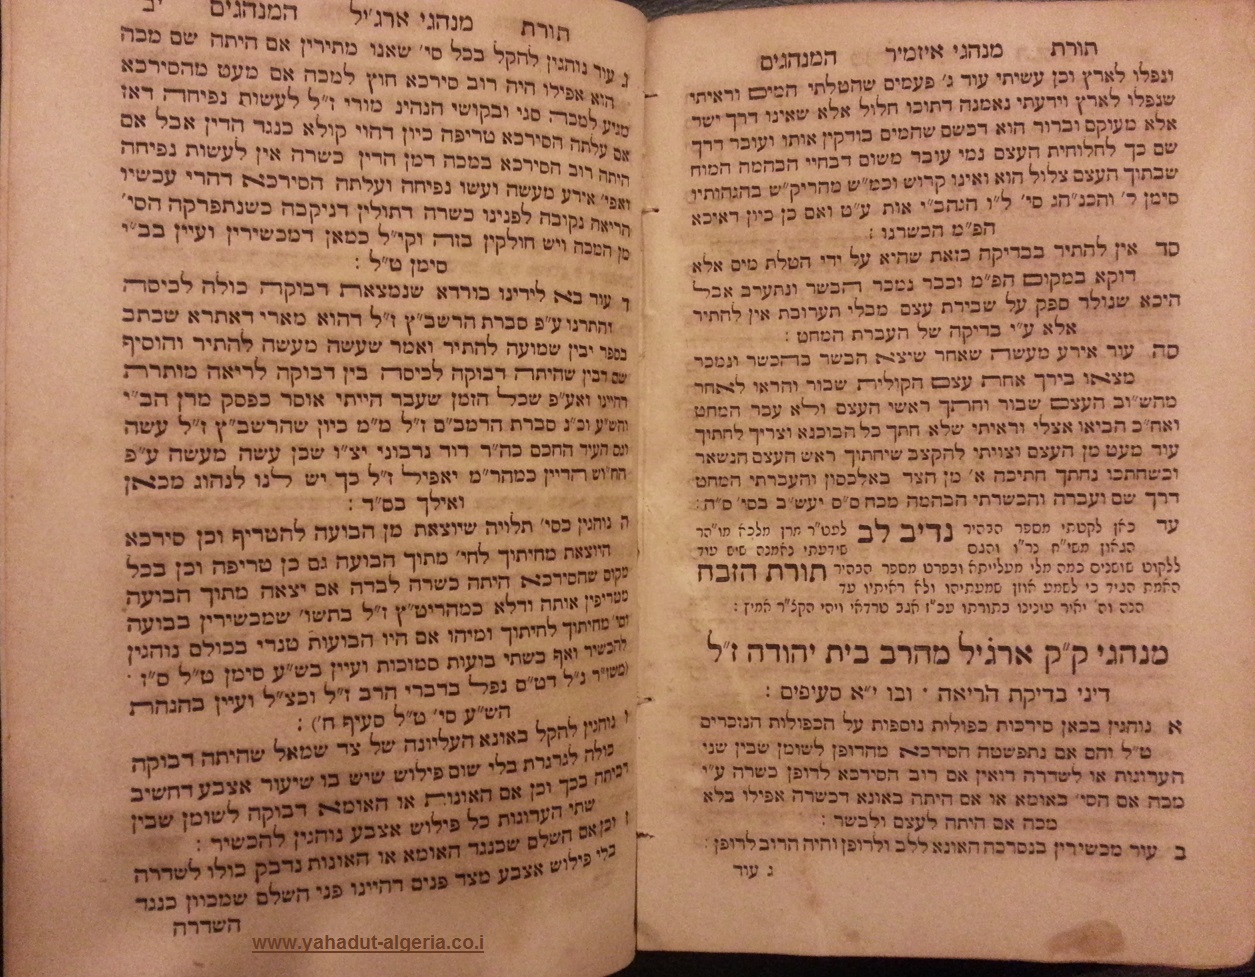 תורת מנהגי איזמיר המנהגים
ונפלו לארץ וכן עשיתי עוד ג׳ פעמים שהטלתי המים וראיתי
שנפלו לארץ וידעתי נאמנה דתוכו חלול אלא שאינו דרך ישר
אלא מעוקם וברור הוא דכשם שהמים בודקין אותו ועובר דרך
שם כך לחלוחית העצם נמי עובר משום דבחיי הבהמה המוח
שבתוך העצם צלול הוא ואינו קרוש וכמ״ש מהריק״ש בהגהותיו
סימן ל׳ והכנ״הג סי׳ ל״ו הגהב״י אות ע״ט ואם כן כיון דאיכא
הפ״מ הכשרנו :
סד אין להתיר בבדיקה כזאת שהיא על ידי הטלת מים אלא
דוקא במקום הפ״מ וכבר נמכר הבשר ונתערב אבל
היכא שנולד ספק על שבירת עצם מבלי תערובת אין להתיר
אלא ע״י בדיקה של העברת המחט :
סה עוד אירע מעשה שאחר שיצא הבשר בהכשר ונמכר
מצאו בירך אחת עצם הקולית שבור והראו לאחר
מהש״וב העצם שבור וחתך ראשי העצם ולא עבר המחט
ואח״כ הביאו אצלי וראיתי שלא חתך כל הבוכנא וצריך לחתוך
עוד מעט מן העצם וצויתי להקצב שיחתוך ראש העצם הנשאר
וכשחתכו נחתך חתיכה א׳ מן הצד באלכסון והעברתי המחט
דרך שם ועברה והכשרתי הבהמה מכח ס״ס יעש״ב בסי׳ ס״ה :
עד כאן לקטתי מספר הבהיר נדיב לב לעט״ר מרן מלכא מו״הר
הגאון משי״ח נר״ו והגם שידעתי נאמנה שיש עוד
ללקוט שושנים כמה מלי מעלייתא ובפרט מספר הבהיר תורת הזבח
האמת הגיד כי לשמע אוזן שמעתיהו ולא ראיתיו עד
הנה וה׳ יאיר עינינו בתורתו עכ״ז אגב טרדאי ויהי הקב״ר אמין :
מנהגי ק״ק ארג׳יל מהרב בית יהודה ז״ל
דיני בדיקת הריאה ׳ ובו י״א סעיפים :
א נוהגין בכאן סירכות כפולות נוספות על הכפולות הנזכרים
ט״ל והם אם נתפשטה הסירכא מהדופן לשומן שבין שני
הערוגות או לשדרה רואין אם רוב הסירכא לדופן כשרה ע״י
מכה אם הסי׳ באומא או אם היתה באונא דכשרה אפילו בלא
מכה אם היתה לעצם ולבשר :
ב עוד מכשירין בנסרכה האונא ללב ולדופן והיה הרוב לדופן :
ג עוד
תורת מנהגי ארג׳יל המנהגים יב
ג עוד נוהגין להקל בכל סי׳ שאנו מתירין אם היתה שם מכה
הוא אפילו היה רוב סירכא חוץ למכה אם מעט מהסירכא
מגיע למכה סגי ובקושי הנהיג מורי ז״ל לעשות נפיחה דאז
אם עלתה הסירכא טריפה כיון דהוי קולא כנגד הדין אבל אם
היתה רוב הסירכא במכה דמן הדין כשרה אין לעשות נפיחה
ואפי׳ אירע מעשה ועשו נפיחה ועלתה הסירכא דהרי עכשיו
הריאה נקובה לפנינו כשרה דתולין דניקבה כשנתפרקה הסי׳
מן המכה ויש חולקין בזה וקי״ל כמאן דמכשירין ועיין בב״י
סימן ט״ל :
ד עוד בא לידינו בורדא שנמצאת דבוקה כולה לכיסה
והתרנו ע״פ סברת הרשב״ץ ז״ל דהוא מארי דאתרא שכתב
בספר יבין שמועה להתיר ואמר שעשה מעשה להתיר והוסיף
שם דבין שהיתה דבוקה לכיסה בין דבוקה לריאה מותרת
דהיינו ואע״פ שכל הזמן שעבר הייתי אוסר כפסק מרן הב״י
והש״ע וכ״נ סברת הרמב״ם ז״ל מ״מ כיון שהרשב״ץ ז״ל עשה
וגם העיד החכם כה״ר דוד נרבוני יצ״ו שכן עשה מעשה ע״פ
הח״וש הדיין כמהר״מ יאפיל ז״ל כך יש לנו לנהוג מכאן
ואילך בס״ד :
ה נוהגין בסי׳ תלויה שיוצאת מן הבועה להטריף וכן סירכא
היוצאת מחיתוך לחי׳ מתוך הבועה גם כן טריפה וכן בכל
מקום שהסירכא היתה כשרה לבדה אם יצאה מתוך הבועה
מטריפין אותה ודלא כמהריט״ץ ז״ל בתשו׳ שמכשירין בבועה
וסי׳ מחיתוך לחיתוך ומיהו אם היו הבועות טנרי בכולם נוהגין
להכשיר ואף בשתי בועות סמוכות ועיין בש״ע סימן ט״ל ס״ז ׳
(משז״ר נ״ל דט״ס נפל בדברי הרב ז״ל וכצ״ל ועיין בהגהת
הש״ע סי׳ ט״ל סעיף ח׳) :
ו נוהגין להקל באונא העליונה של צד שמאל שהיתה דבוקה
כולה לגרגרת בלי שום פילוש שיש בו שיעור אצבע דחשיב
רביתה בכך וכן אם האונות או האומא דבוקה לשומן שבין
שתי הערוגות כל פילוש אצבע נוהגין להכשיר :
ז וכן אם השלם שכנגד האומא או האונות נדבק כולו לשדרה
בלי פילוש אצבע מצד פנים דהיינו פני השלם שמכוון כנגד
השדרה
www.yahadut-algeria.co.i